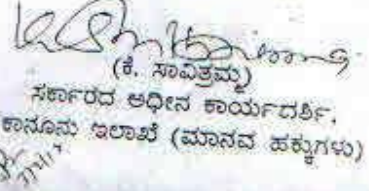 (ಕೆ. ಸಾವಿತ್ರಮ್ಮ)
ಸರ್ಕಾರದ ಅಧೀನ ಕಾರ್ಯದರ್ಶಿ,
ಕಾನೂನು ಇಲಾಖೆ (ಮಾನವ ಹಕ್ಕುಗಳು)